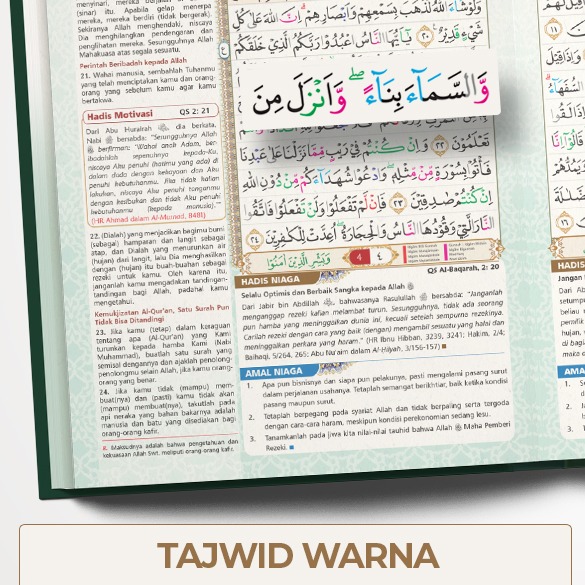 menyinari, mereka berjalan
(sinar) itu. Apabila gelap menerpa
mereka, mereka berdiri (tidak bergerak).
Sekiranya Allah menghendaki, niscaya
Dia menghilangkan pendengaran dan
penglihatan mereka. Sesungguhnya Allah
Mahakuasa atas segala sesuatu.
Perintah Beribadah kepada Allah
21. Wahai manusia, sembahlah Tuhanmu
yang telah menciptakan kamu dan orang-
orang yang sebelum kamu agar kamu
bertakwa.
Hadis Motivasi QS 2: 21
Dari Abu Hurairah dia berkata,
Nabi bersabda: "Sesungguhnya Allah
berfirman: 'Wahai anak Adam, ber-
ibadahlah sepenuhnya kepada-Ku,
niscaya Aku penuhi (hatimu yang ada) di
dalam dada dengan kekayaan dan Aku
penuhi kebutuhanmu. Jika tidak kalian
lakukan, niscaya Aku penuhi tanganmu
dengan kesibukan dan tidak Aku penuhi
kebutuhanmu (kepada manusia).'"
(HR Ahmad dalam Al-Musnad, 8481)
22. (Dialah) yang menjadikan bagimu bumi
(sebagai) hamparan dan langit sebagai
atap, dan Dialah yang menurunkan air
(hujan) dari langit, lalu Dia menghasilkan
dengan (hujan) itu buah-buahan sebagai
rezeki untuk kamu. Oleh karena itu,
janganlah kamu mengadakan tandingan-
tandingan bagi Allah, padahal kamu
mengetahui.
Kemukjizatan Al-Qur'an, Satu Surah Pun
Tidak Bisa Ditandingi
23. Jika kamu (tetap) dalam keraguan
tentang apa (Al-Qur'an) yang Kami
turunkan kepada hamba Kami (Nabi
Muhammad), buatlah satu surah yang
semisal dengannya dan ajaklah penolong-
penolongmu selain Allah, jika kamu orang-
orang yang benar.
24. Jika kamu tidak (mampu) mem-
buat(nya) dan (pasti) kamu tidak akan
(mampu) membuat(nya), takutlah pada
api neraka yang bahan bakarnya adalah
manusia dan batu yang disediakan bagi
orang-orang kafir.
8. Maksudnya adalah bahwa pengetahuan dan
kekuasaan Allah Swt. meliputi orang-orang kafir.
وَلَوْ شَاءَ اللّٰهُ لَذَهَبَ بِسَمْعِهِمْ وَاَبْصَارِهِمْ ۗ اِنَّ اللّٰهَ عَلٰى كُلِّ
شَيْءٍ قَدِيْرٌ ٢٠ يٰٓاَيُّهَا النَّاسُ اعْبُدُوْا رَبَّكُمُ الَّذِيْ خَلَقَكُمْ
وَّالسَّمَاۤءَ بِنَاۤءً ۖ وَّاَنْزَلَ مِنَ
تَعْلَمُوْنَ ٢٢ وَاِنْ كُنْتُمْ فِيْ رَيْبٍ مِّمَّا نَزَّلْنَا عَلٰى عَبْدِنَا
فَأْتُوْا بِسُوْرَةٍ مِّنْ مِّثْلِهٖ ۖ وَادْعُوْا شُهَدَاۤءَكُمْ مِّنْ دُوْنِ اللّٰهِ
اِنْ كُنْتُمْ صٰدِقِيْنَ ٢٣ فَاِنْ لَّمْ تَفْعَلُوْا وَلَنْ تَفْعَلُوْا فَاتَّقُوا
النَّارَ الَّتِيْ وَقُوْدُهَا النَّاسُ وَالْحِجَارَةُ ۖ اُعِدَّتْ لِلْكٰفِرِيْنَ ٢٤
وَبَشِّرِ الَّذِيْنَ اٰمَنُوْا
4 ٤
HADIS NIAGA QS Al-Baqarah, 2: 20
Selalu Optimis dan Berbaik Sangka kepada Allah
Dari Jabir bin Abdillah bahwasanya Rasulullah bersabda: "Janganlah
menganggap rezeki kalian melambat turun. Sesungguhnya, tidak ada seorang
pun hamba yang meninggalkan dunia ini, kecuali setelah sempurna rezekinya.
Carilah rezeki dengan cara yang baik (dengan) mengambil sesuatu yang halal dan
meninggalkan perkara yang haram." (HR Ibnu Hibban, 3239, 3241; Hakim, 2/4;
Baihaqi, 5/264, 265; Abu Nu'aim dalam Al-Hilyah, 3/156-157)
AMAL NIAGA
1. Apa pun bisnisnya dan siapa pun pelakunya, pasti mengalami pasang surut
dalam perjalanan usahanya. Tetaplah semangat berikhtiar, baik ketika kondisi
pasang maupun surut.
2. Tetaplah berpegang pada syariat Allah dan tidak berpaling serta tergoda
dengan cara-cara haram, meskipun kondisi perekonomian sedang lesu.
3. Tanamkanlah pada jiwa kita nilai-nilai tauhid bahwa Allah Maha Pemberi
Rezeki.
HADIS
Jangan
AMA
TAJWID WARNA